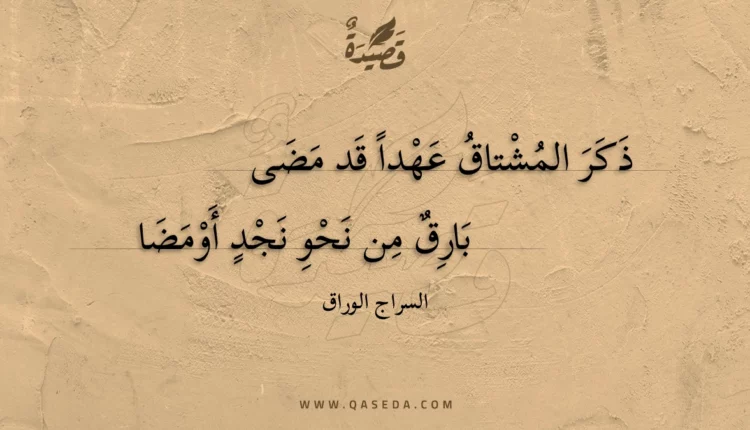 قَصِيدَةٌ
ذَكَرَ المُشْتاقُ عَهْداً قَد مَضَى
بَارِقٌ مِن نَحْوِ نَجْدٍ أَوْمَضَا
السراج الوراق
WWW.QASEDA.COM